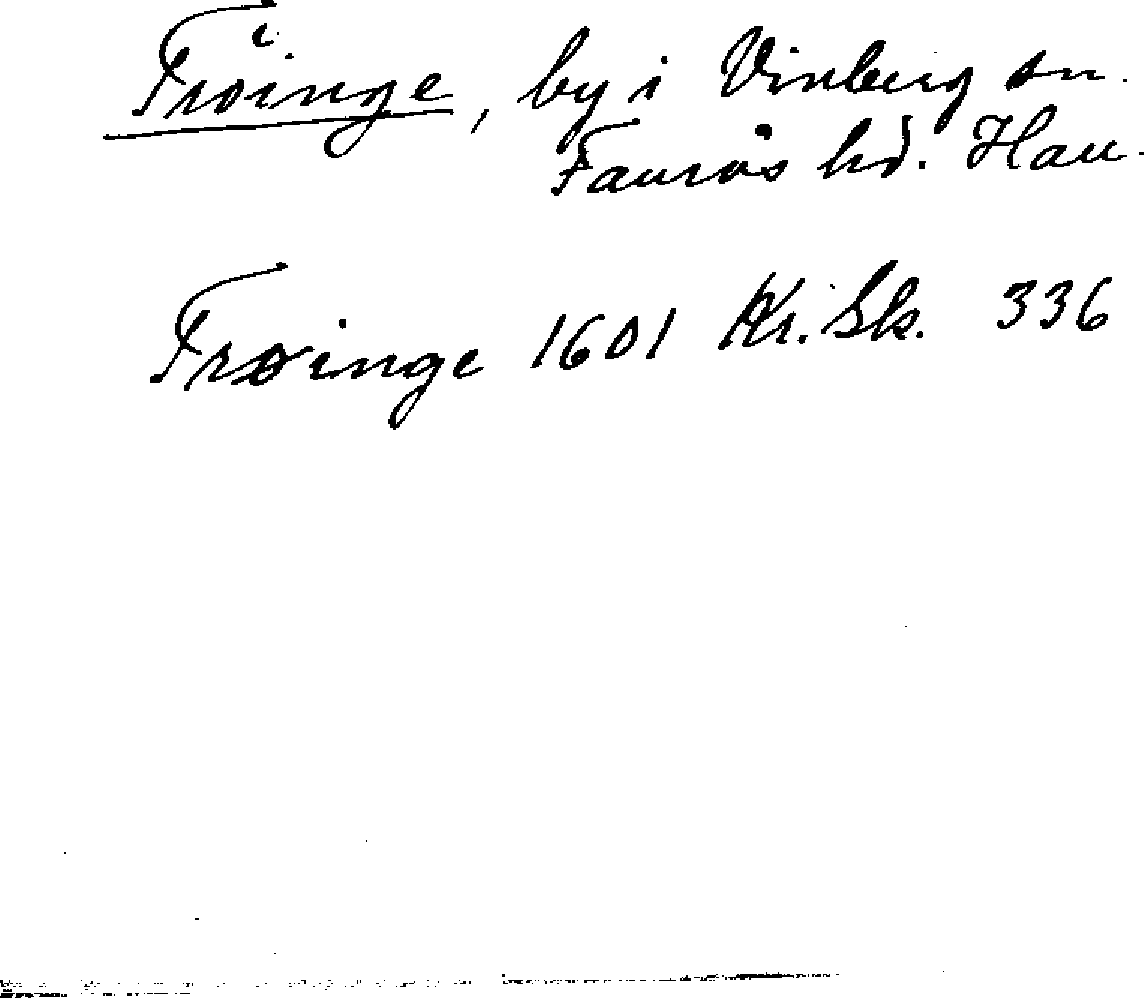 Tröinge, by i Vinberg sn.
Faurås hd. Hall.
Trøinge 1601 Kr. Sk. 336